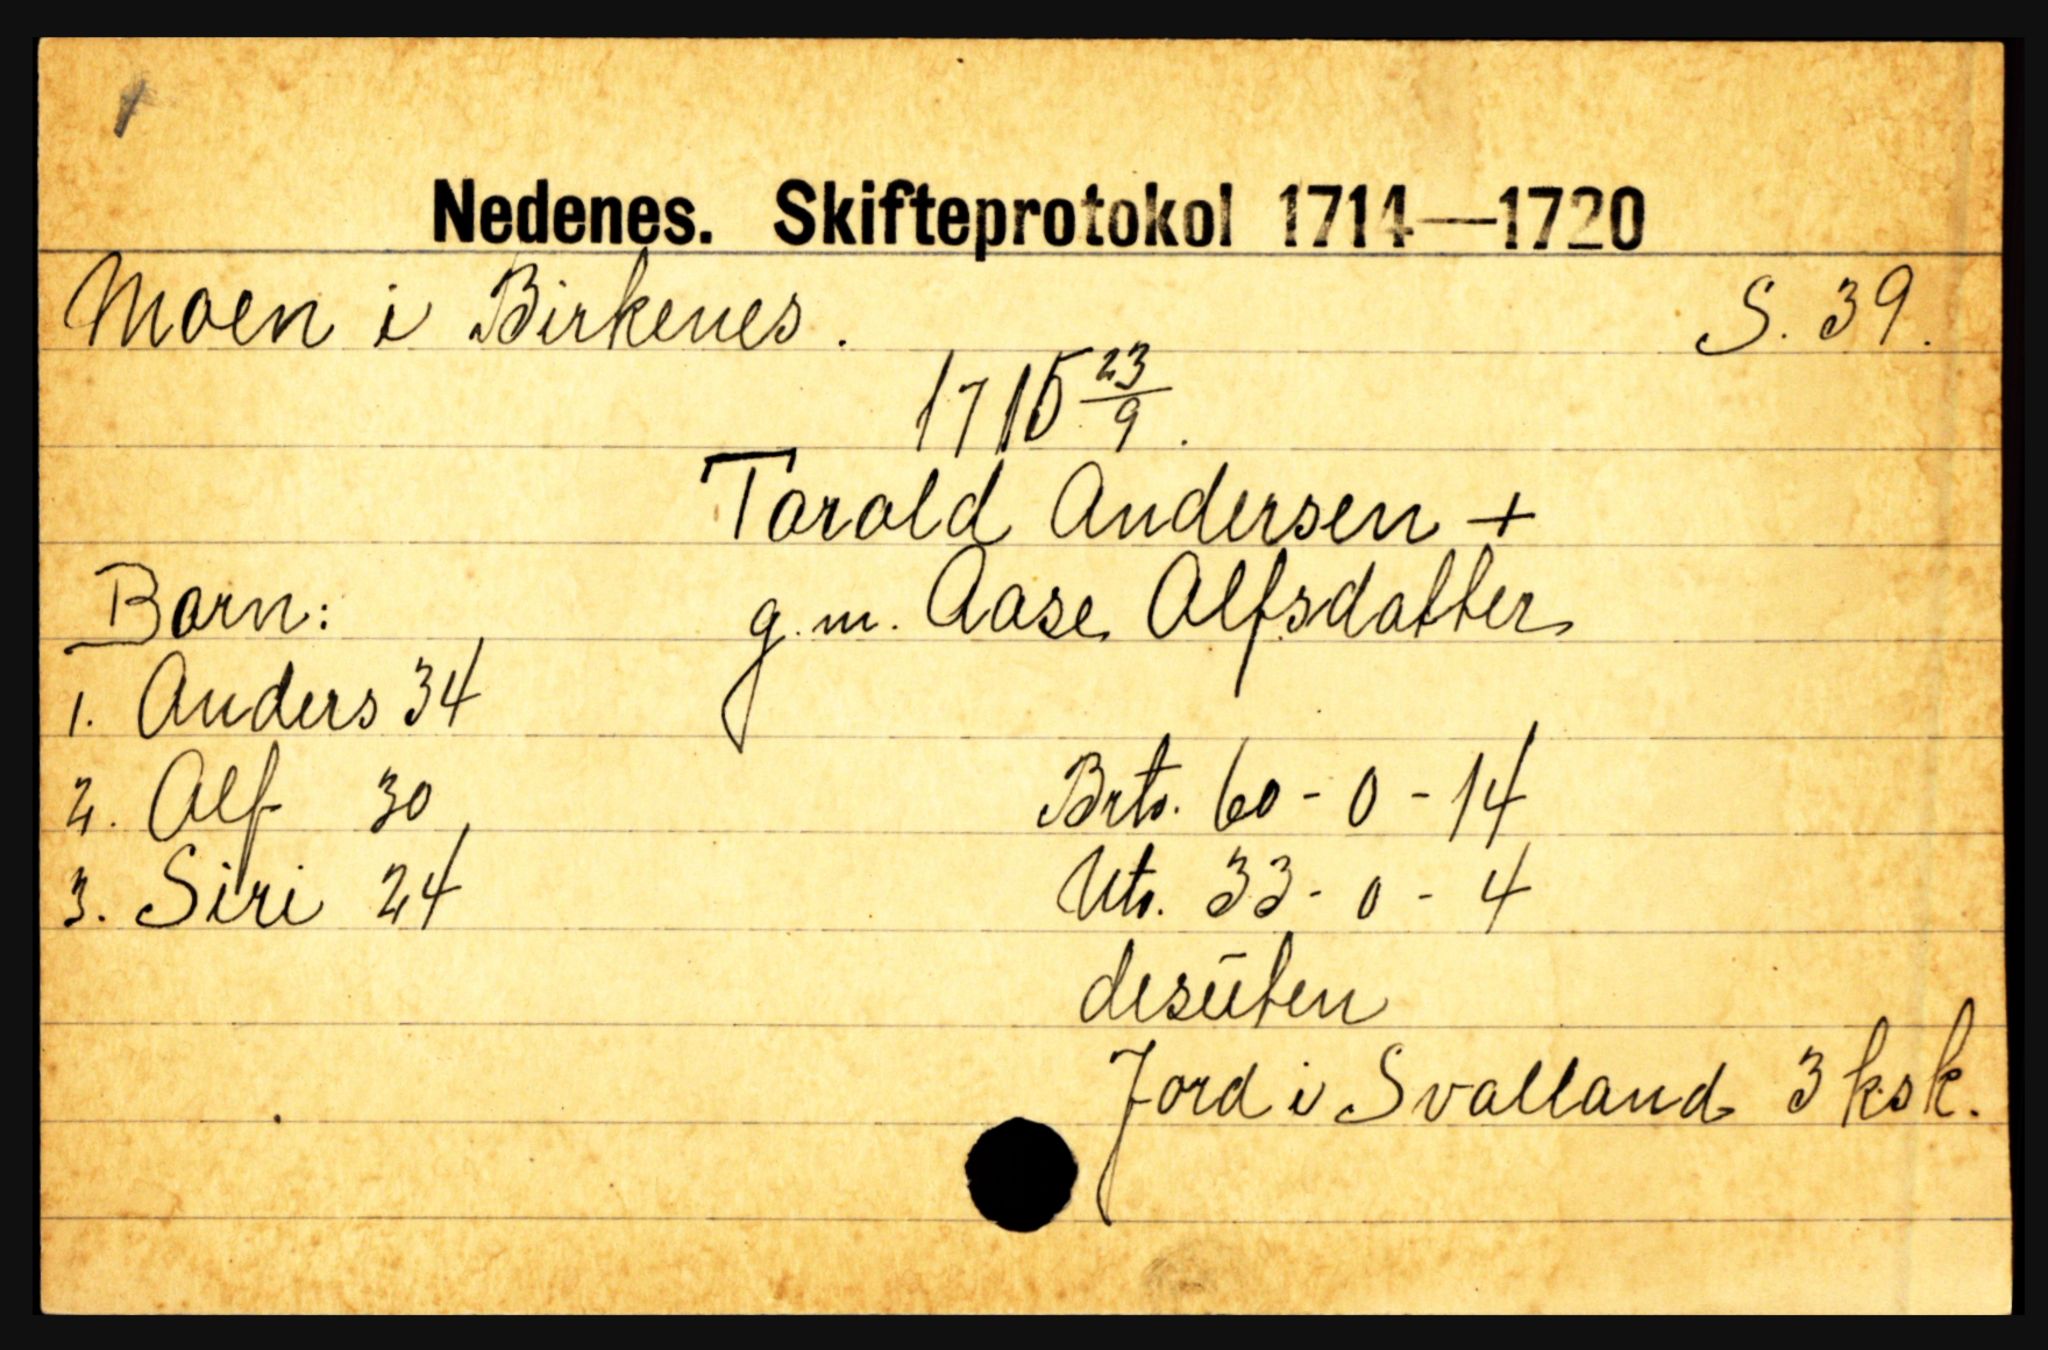 Nedenes. Skifteprotokol 1714—1720
Moen i Birkenes. S. 39.
1715 23/9.
Torold Andersen +
g. m. Aase Alfsdatter
Born:
1. Anders 34
2. Alf 30
3. Siri 24
Brto. 60 - 0 - 14
Uto. 33 - 0 - 4
desūten
Jord i Svalland 3 ksk.